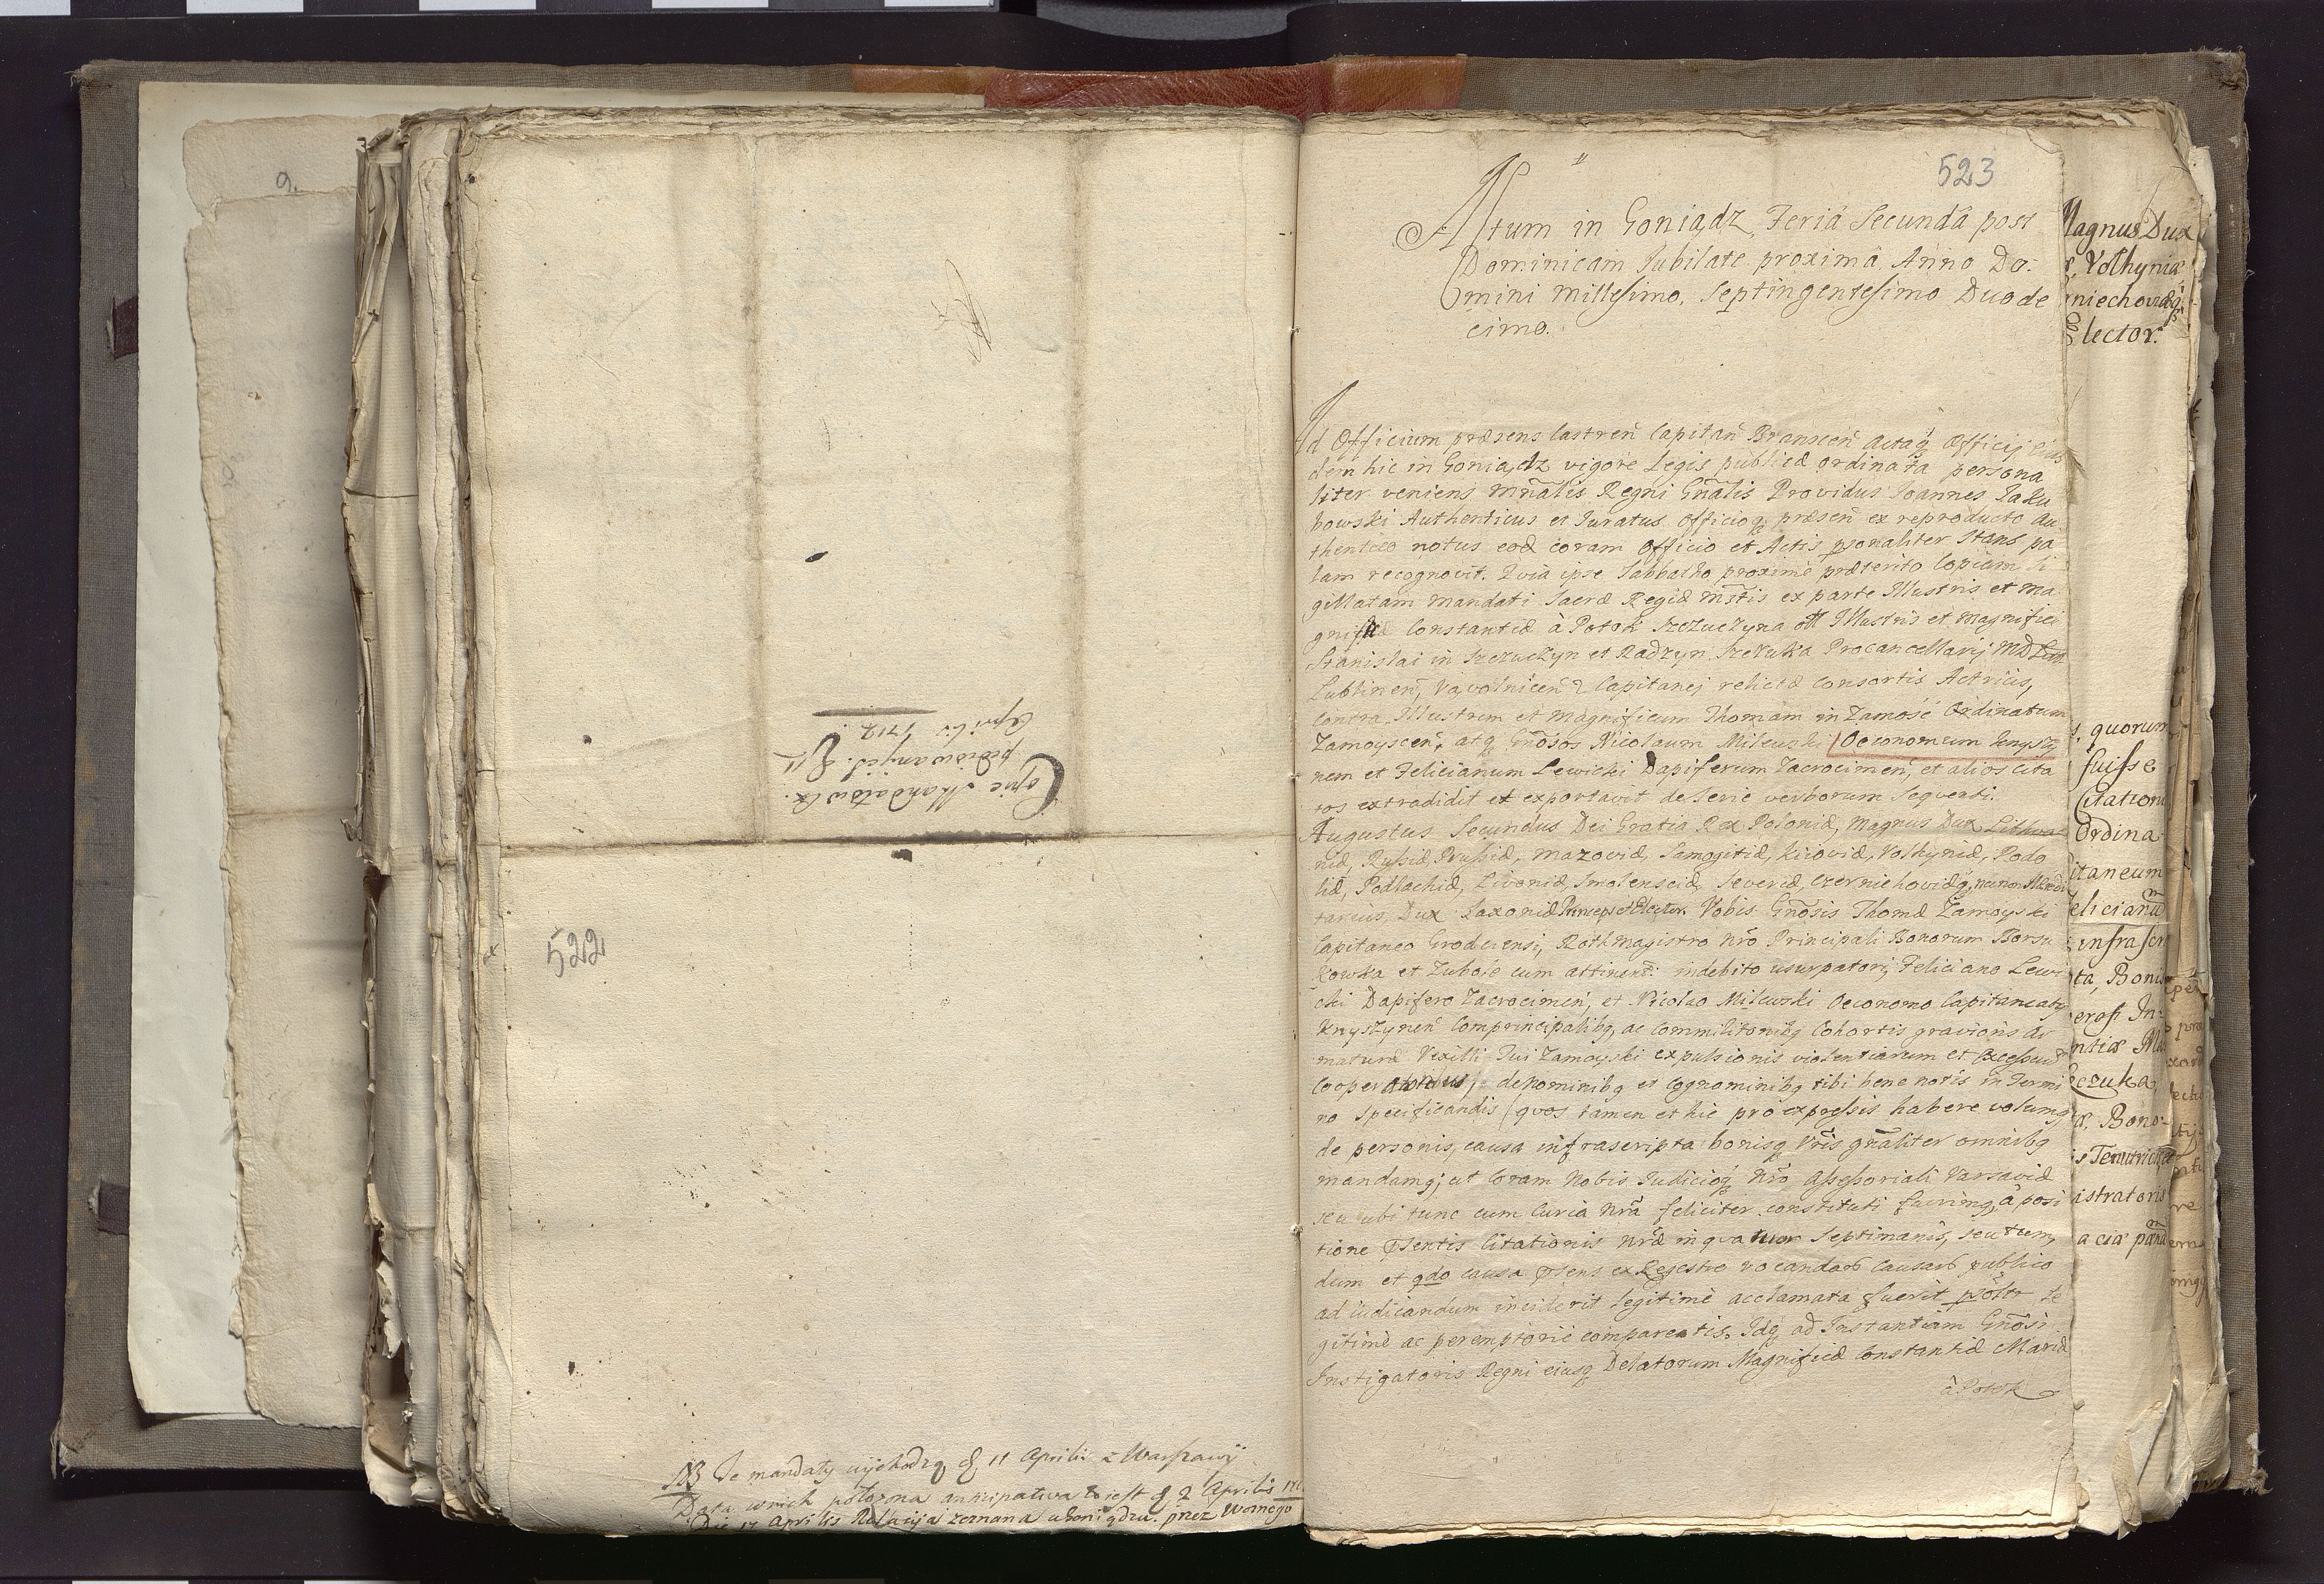 9.
Copie Mandatow ex
pediowanych. d 11
Aprilis 1712.
522
NB Te mandaty wychodzą d 11 Aprilis z Warszawy
Data wnich położona anticipativa to iest d 2 Aprilis
Die 17 Aprilis Relacyja zeznana przez Woznego
523
Actum in Goniądz Feriâ Secundâ post
Dominicam Jubilate proximâ Anno Do:
mini Millesimo, Septingentesimo Duode
cimo.
Ad Officium præsens Castren̄ Capitan̄ Branscen̄ Actaq Officij eius
dem hic in Goniądz vigore Legis publicæ ordinata persona
liter veniens Mn̄alis Regni Gn̄alis Providus Joannes Jaku
bowski Authenticus et Juratus Officioq præsen̄ ex reproducto Au
thentico notus eod coram Officio et Actis psonaliter stans pa
lam recognovit. Quia ipse Sabbatho proximè præterito Copiam Si
gillatam Mandati Sacræ Regiæ Mt̄tis ex parte Illustris et Ma
gnificæ Constantiæ à Potok Szczuczyna olt̄ Illustris et Magnifici
Stanislai in Szczuczyn et Radzyn Szczuka Procancellarij MD Litt
Lublinen̄, Vąvolnicen̄ & Capitanej relictæ Consortis Actricis,
Contra Illustrem et Magnificum Thomam in Zamosć Ordinatum
Zamoyscen̄, atq Gn̄osos Nicolaum Milewski Oeconomum Knyszy
nen̄ et Felicianum Lewicki Dapiferum Zacrocimen̄, et alios Cita
tos extradidit et exportavit de serie verborum sequenti.
Augustus Secundus Dei Gratia Rex Poloniæ, Magnus Dux Lithva
niæ, Russiæ, Prussiæ, Mazoviæ, Samogitiæ, Kijoviæ, Volhyniæ, Podo
liæ, Podlachiæ, Livoniæ, Smolensciæ, Severiæ, Czerniehoviæq, nec non Hæredi
tarius Dux Saxoniæ Princeps et Elector. Vobis Gn̄osis Thomæ Zamoyski
Capitaneo Grodecensi, Rothmagistro Nr̄o Principali Bonorum Borsu
kowka et Zubole cum attinend: indebito usurpatori, Feliciano Lewi
cki Dapifero Zacrocimen̄, et Nicolao Milewski Oeconomo Capitaneatus
Knyszynen̄ Comprincipalibq, ac Commilitonibq Cohortis gravioris Ar
maturæ Vexilli Tui Zamoyski expulsionis violentiarum et Excessuum
Cooperatoribus, de nominibq et Cognominibq tibi bene notis in Termi
no specificandis (quos tamen et hic pro expressis habere volumq
de personis, causa infrascripta bonisq Vr̄is gn̄aliter omnibq
mandamq, ut Coram Nobis Judicioq Nr̄o Assessoriali Varsaviæ
seu ubi tunc cum Curia Nr̄a feliciter constituti fuerimq, à posi
tione psentis Citationis Nr̄æ in quatuor Septimanis, seu tum,
dum et qdo causa psens ex Regestro vocandar causar publico
ad iudicandum inciderit legitimè acclamata fuerit psoltr le
gitimè ac peremptoriè compareatis. Idq ad Instantiam Gn̄osi
Instigatoris Regni eiusq Delatorum Magnificæ Constantiæ Mariæ
à Potok
Magnus Dux
Volhyniæ
rniechoviæq
Elector.
quorum
fuisse
Citationi
Ordina
itaneum
elicianū
infrascr
ta, Bonis
erosi In:
ntiæ Ma
zczuka
æ, Bono:
s Tenutricis
istratoris